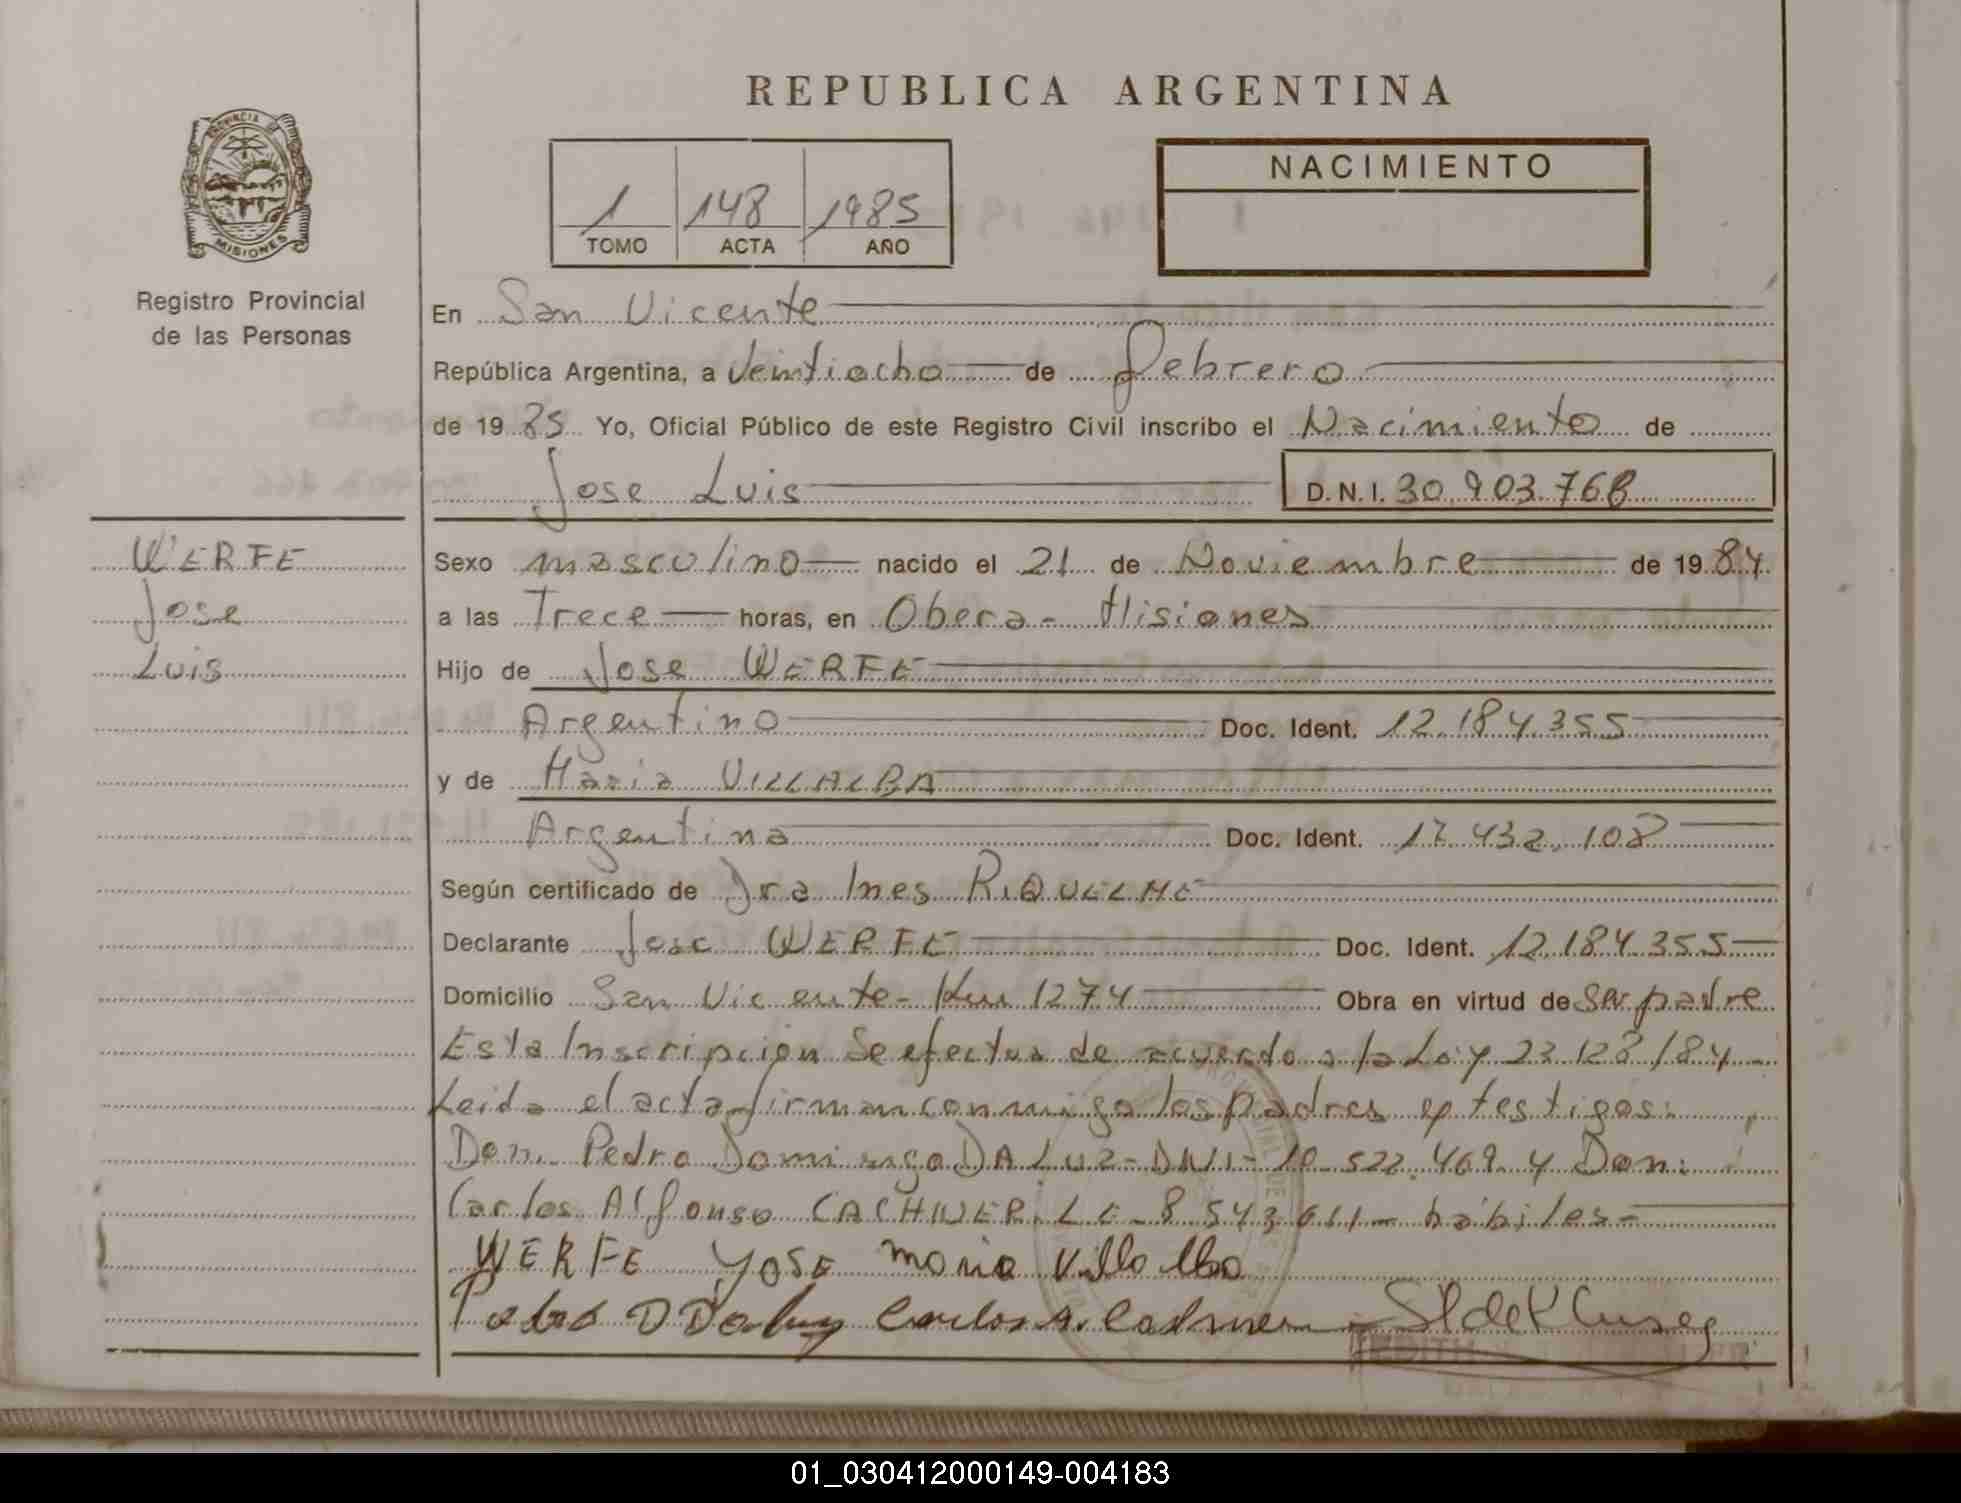 REPUBLICA ARGENTINA
PROVINCIA DE
MISIONES
Registro Provincial
de las Personas
1 148 1985
TOMO ACTA AÑO
NACIMIENTO
En San Vicente
República Argentina, a Veintiocho de Febrero
de 19 85 Yo, Oficial Público de este Registro Civil inscribo el Nacimiento de
Jose Luis D.N.I. 30.903.768
WERFE
Jose
Luis
Sexo masculino nacido el 21 de Noviembre de 19 84
a las Trece horas, en Obera - Misiones
Hijo de Jose WERFE
Argentino Doc. Ident. 12.184.355
y de Maria VILLALBA
Argentina Doc. Ident. 17.432.108
Según certificado de Dra Ines RIQUELME
Declarante Jose WERFE Doc. Ident. 12.184.355
Domicilio San Vicente - Km 1274 Obra en virtud de Ser padre
Esta Inscripcion Se efectua de acuerdo a la Ley 23 128/84
Leida el acta firman conmigo los padres y testigos:
Don. Pedro Domingo DA LUZ - DNI - 10.522.469 y Don:
Carlos Alfonso CACHNER. L E - 8 543 611 - habiles -
WERFE YOSE Maria Villalba
Pedro D Da luz Carlos A. Cachner
01_030412000149-004183